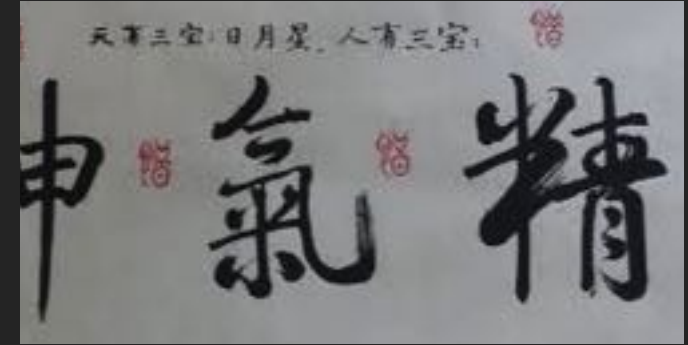 天有三宝:日月星,人有三宝:
精氣申